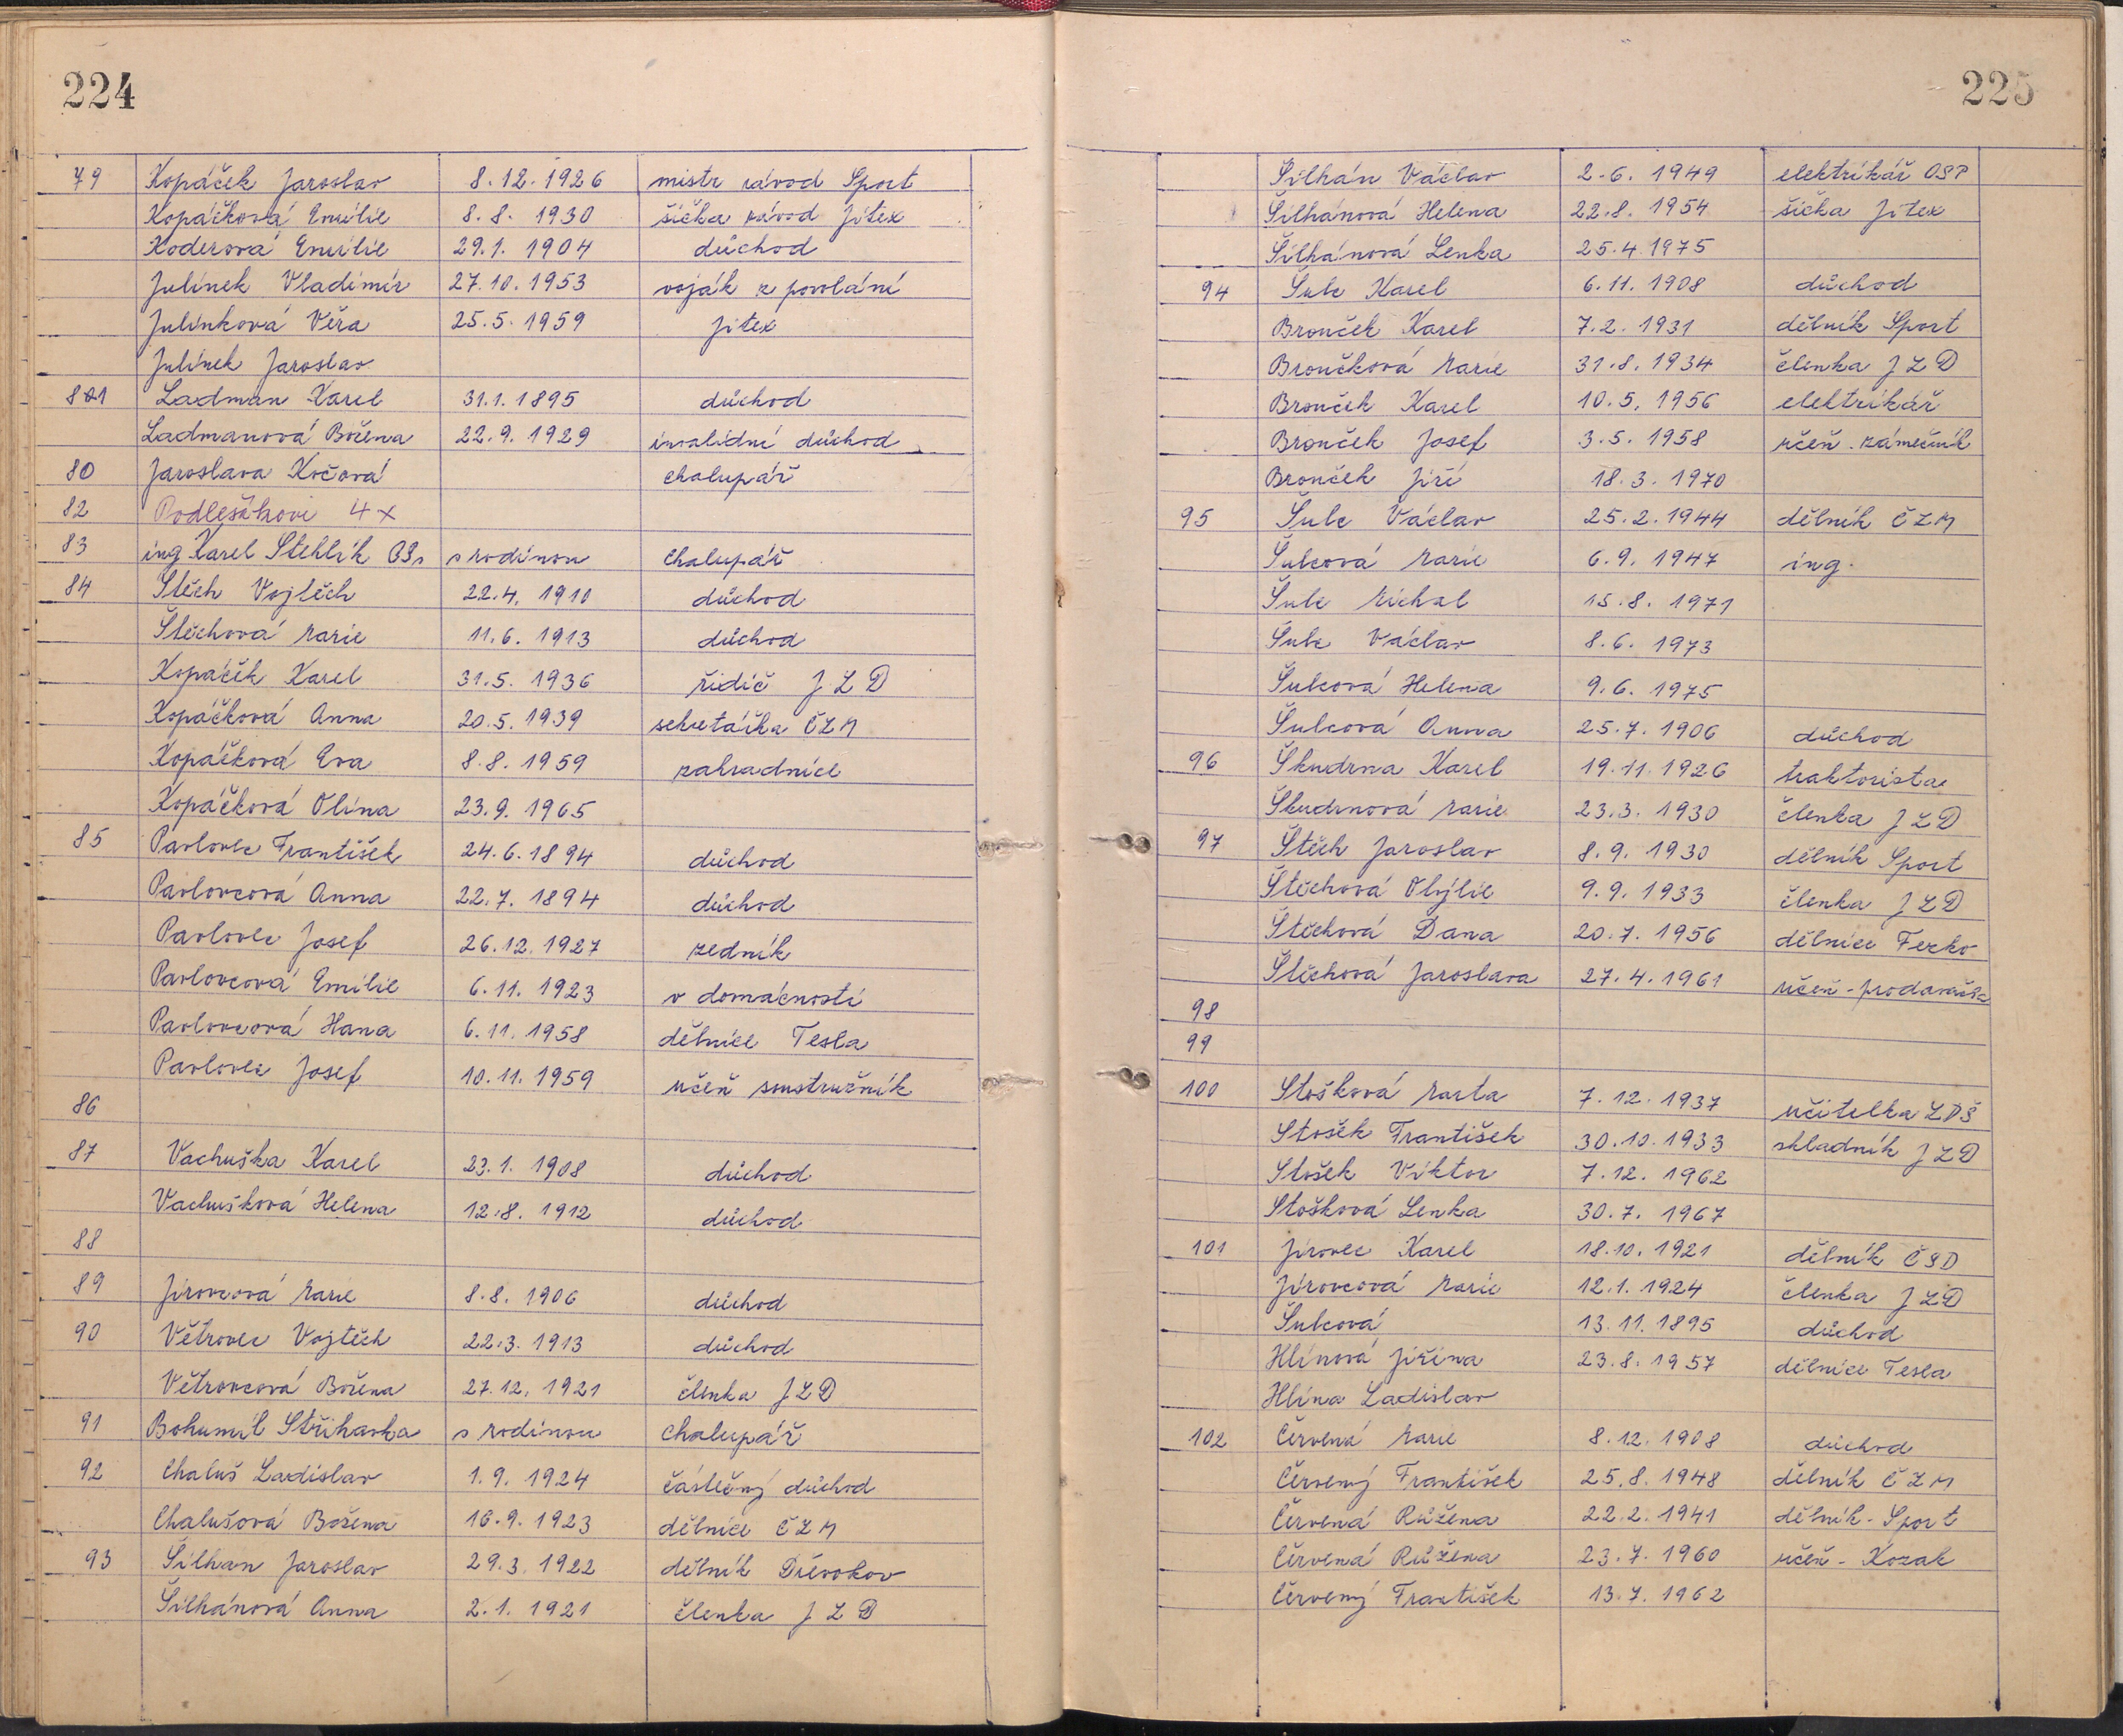 224
79 Kopáček Jaroslav 8.12.1926 mistr závod Sport
Kopáčková Emilie 8.8.1930 šička závod Jitex
Koderová Emilie 29.1.1904 důchod
Julínek Vladimír 27.10.1953 voják z povolání
Julínková Věra 25.5.1959 Jitex
Julínek Jaroslav
81 Ladman Karel 31.1.1895 důchod
Ladmanová Božena 22.9.1929 invalidní důchod
80 Jaroslava Kočová chalupář
82 Podlešákovi 4x
83 ing Karel Stehlík s rodinou Chalupář
84 Štěch Vojtěch 22.4.1910 důchod
Štěchová Marie 11.6.1913 důchod
Kopáček Karel 31.5.1936 řidič JZD
Kopáčková Anna 20.5.1939 sekretářka ČZM
Kopáčková Eva 8.8.1959 zahradnice
Kopáčková Olina 23.9.1965
85 Pavlovec František 24.6.1894 důchod
Pavlovcová Anna 22.7.1894 důchod
Pavlovec Josef 26.12.1927 zedník
Pavlovcová Emilie 6.11.1923 v domácnosti
Pavlovcová Hana 6.11.1958 dělnice Tesla
Pavlovec Josef 10.11.1959 učeň soustružník
86
87 Vachuška Karel 23.1.1908 důchod
Vachušková Helena 12.8.1912 důchod
88
89 Jírovcová Marie 8.8.1906 důchod
90 Větrovec Vojtěch 22.3.1913 důchod
Větrovcová Božena 27.12.1921 členka JZD
91 Bohumil Střihavka s rodinou Chalupář
92 Chaluš Ladislav 1.9.1924 částečný důchod
Chalušová Božena 16.9.1923 dělnice ČZM
93 Šilhan Jaroslav 29.3.1922 dělník Dřevokov
Šilhánová Anna 2.1.1921 členka JZD
225
Šilhán Václav 2.6.1949 elektrikář OSP
Šilhánová Helena 22.8.1954 šička Jitex
Šilhánová Lenka 25.4.1975
94 Šulc Karel 6.11.1908 důchod
Brouček Karel 7.2.1931 dělník Sport
Broučková Marie 31.8.1934 členka JZD
Brouček Karel 10.5.1956 elektrikář
Brouček Josef 3.5.1958 učeň - zámečník
Brouček Jiří 18.3.1970
95 Šulc Václav 25.2.1944 dělník ČZM
Šulcová Marie 6.9.1947 ing.
Šulc Michal 15.8.1971
Šulc Václav 8.6.1973
Šulcová Helena 9.6.1975
Šulcová Anna 25.7.1906 důchod
96 Škudrna Karel 19.11.1926 traktorista
Škudrnová Marie 23.3.1930 členka JZD
97 Štěch Jaroslav 8.9.1930 dělník Sport
Štěchová Otýlie 9.9.1933 členka JZD
Štěchová Dana 20.7.1956 dělnice Fezko
Štěchová Jaroslava 27.4.1961 učeň - prodavačka
98
99
100 Stošková Marta 7.12.1937 učitelka ZDŠ
Stošek František 30.10.1933 skladník JZD
Stošek Viktor 7.12.1962
Stošková Lenka 30.7.1967
101 Jírovec Karel 18.10.1921 dělník ČSD
Jírovcová Marie 12.1.1924 členka JZD
Šulcová 13.11.1895 důchod
Hlínová Jiřina 23.8.1957 dělnice Tesla
Hlína Ladislav
102 Červená Marie 8.12.1908 důchod
Červený František 25.8.1948 dělník ČZM
Červená Růžena 22.2.1941 dělník - Sport
Červená Růžena 23.7.1960 učeň - Kozak
Červený František 13.7.1962